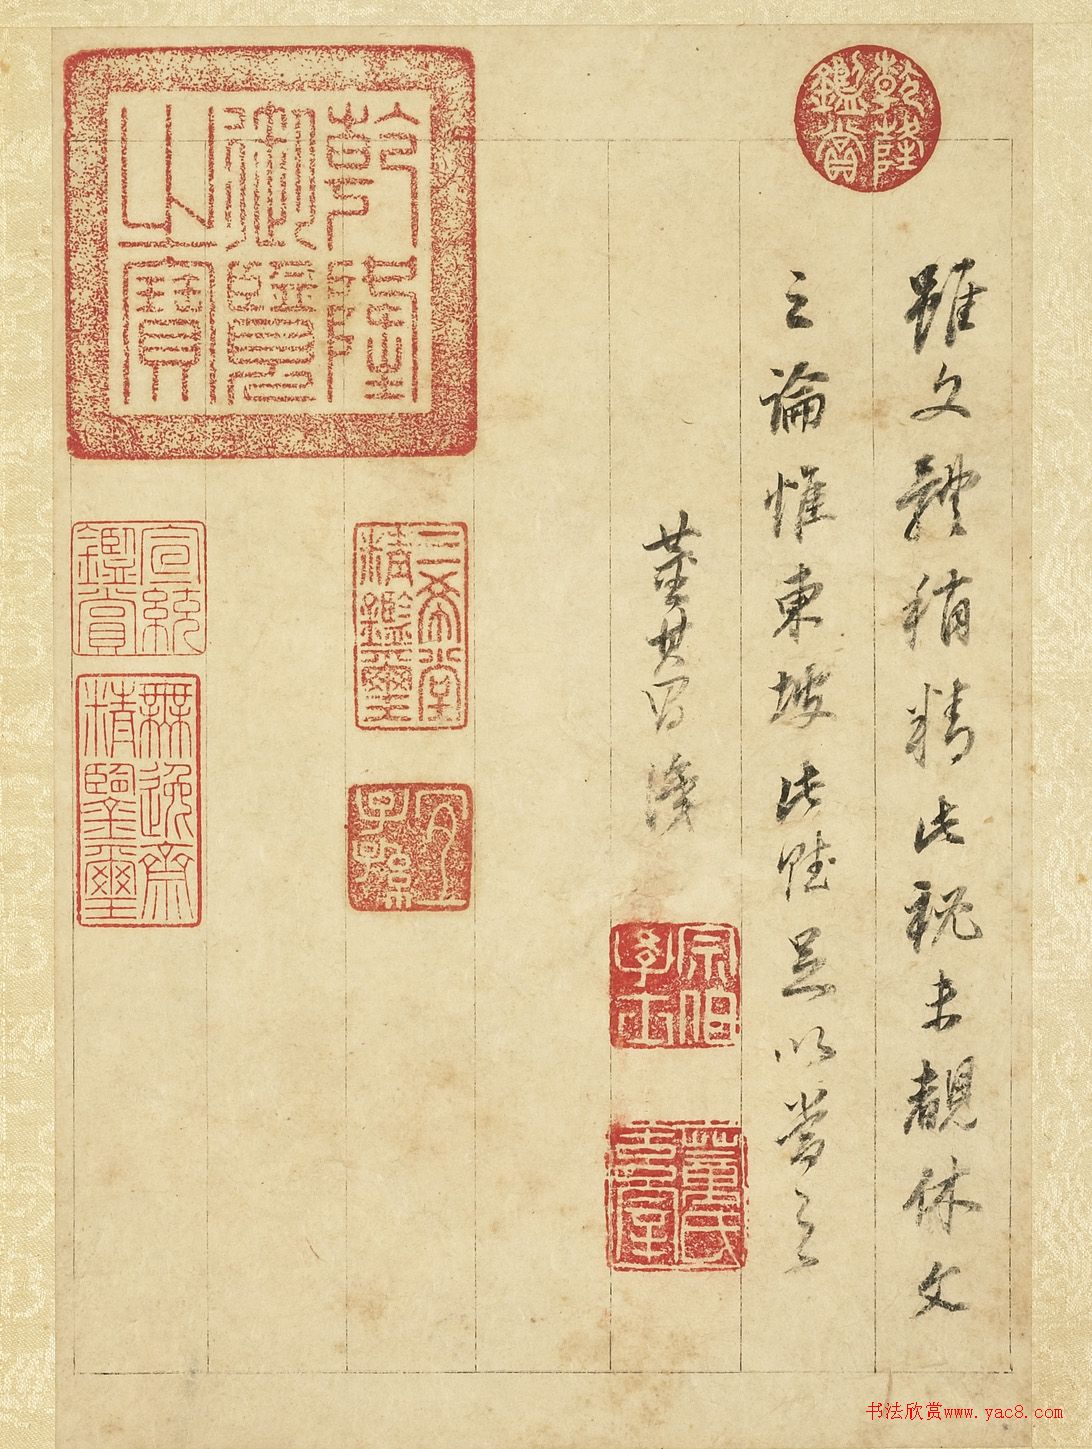 雖文體稍精此秘未覩休文
之論惟東坡此賦足以當之
董其昌識
乾隆鑑賞
宗伯學士
董氏玄宰
三希堂精鑑璽
宜子孫
乾隆御覽之寶
宣統鑑賞
無逸齋精鑒璽
书法欣赏www.yac8.com